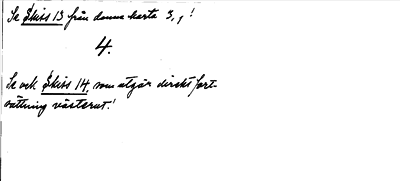 Se Skiss 13 från denna karta 3,,!
4.
Se ock Skiss 14, som utgör direkt fort-
sättning västerut!